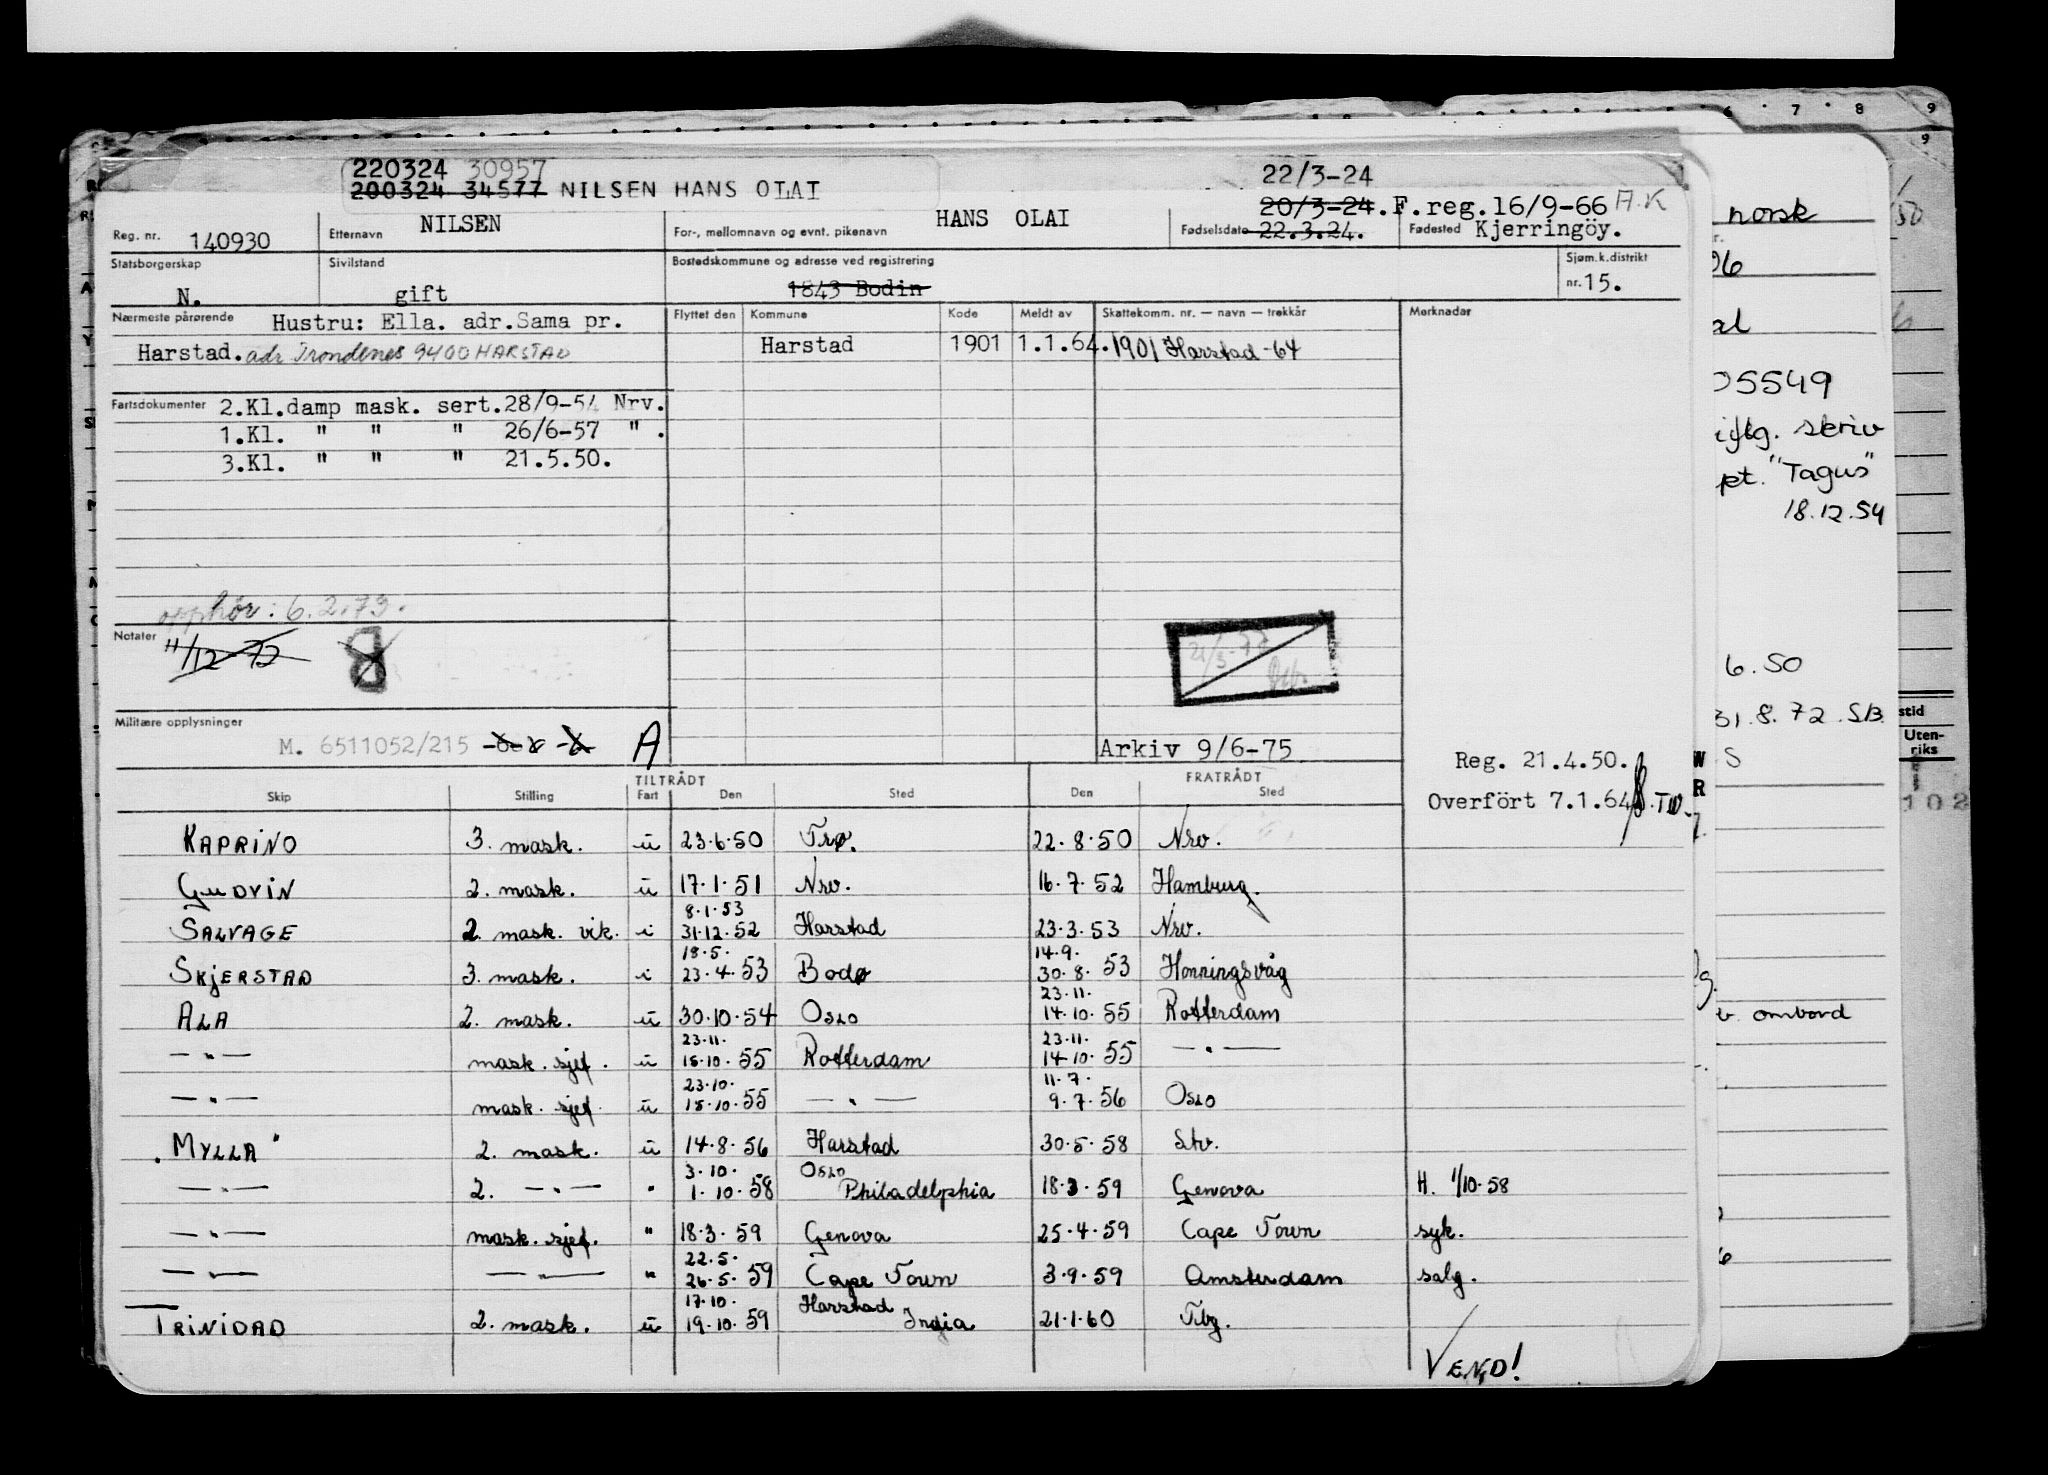 220324 30957
200324 34577 NILSEN HANS OLAI
22/3-24
20/3-24. F.reg.16/9-66 A.K
Reg. nr. 140930 Etternavn NILSEN For-, mellomnavn og evnt. pikenavn HANS OLAI Fødselsdato 22.3.24. Fødested Kjerringöy.
Statsborgerskap N. Sivilstand gift Bostedskommune og adresse ved registrering 1843 Bodin Sjøm.k.distrikt nr. 15.
Nærmeste pårørende Hustru: Ella. adr.Sama pr. Flyttet den Kommune Kode Meldt av Skattekomm. nr. — navn — trekkår Merknader
Harstad. adr Trondenes 9400 HARSTAD Harstad 1901 1.1.64. 1901 Harstad -64
Fartsdokumenter 2.Kl.damp mask. sert.28/9-54 Nrv.
1.Kl. " " " 26/6-57 " .
3.Kl. " " " 21.5.50.
opphör: 6.2.73.
Notater 11/12-72 8
Militære opplysninger
M. 6511052/215 A Arkiv 9/6-75
Reg. 21.4.50.
Overfört 7.1.64
TILTRÅDT FRATRÅDT
Skip Stilling Fart Den Sted Den Sted
KAPRINO 3. mask. u 23.6.50 Trø. 22.8.50 Nrv.
GUDVIN 2. mask. u 17.1.51 Nrv. 16.7.52 Hamburg.
8.1.53
SALVAGE 2. mask. vik. i 31.12.52 Harstad 23.3.53 Nrv.
18.5. 14.9.
SKJERSTAD 3. mask. i 23.4.53 Bodø 30.8.53 Honningsvåg
23.11.
ALA 2. mask. u 30.10.54 Oslo 14.10.55 Rotterdam
23.11. 23.11.
— " — mask. sjef. u 15.10.55 Rotterdam 14.10.55 — " —
23.10. 11.7.
— " — mask. sjef. u 15.10.55 — " — 9.7.56 Oslo
"MYLLA" 2. mask. u 14.8.56 Harstad 30.5.58 Stv.
3.10. Oslo
— " — 2. — " — " 1.10.58 Philadelphia 18.3.59 Genova H. 1/10-58
— " — mask. sjef. " 18.3.59 Genova 25.4.59 Cape Town syk.
22.5.
— " — — " — " 26.5.59 Cape Town 3.9.59 Amsterdam salg.
17.10. Harstad
TRINIDAD 2. mask. u 19.10.59 India 21.1.60 Tbg.
VEND!
6 7 8 9
9
norsk
5549
skriv
"Tagus"
18.12.54
6.50
31.8.72 SB
S
ombord
Uten-
riks
102